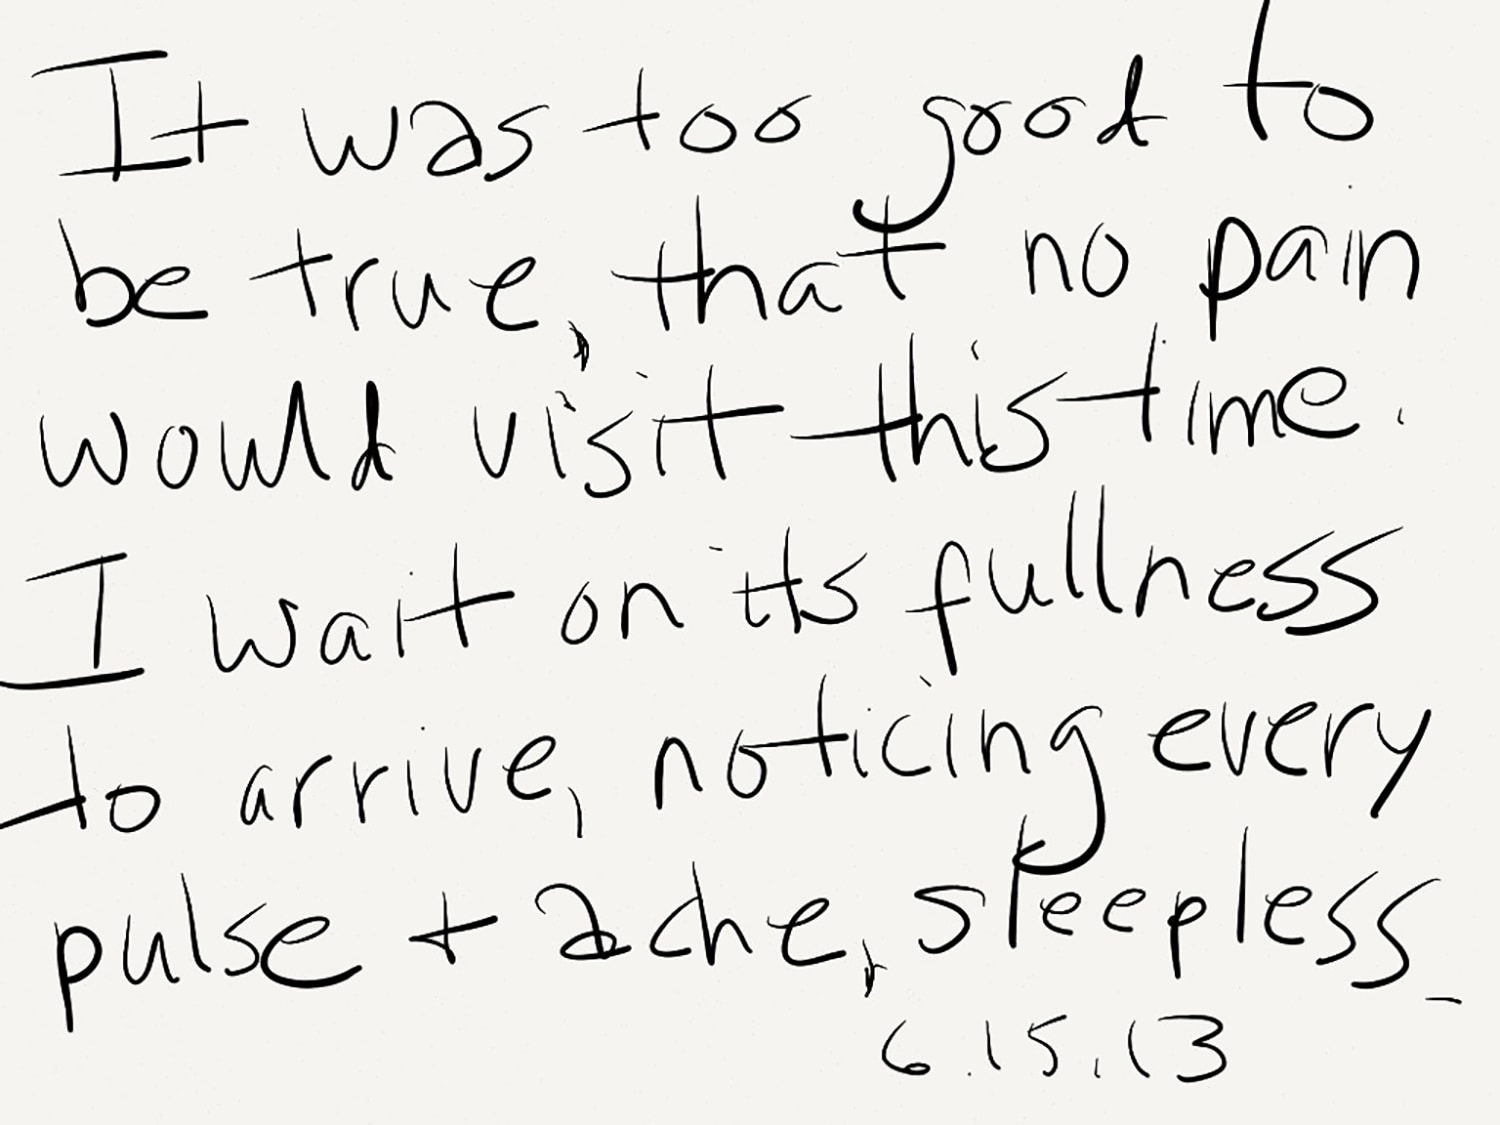 It was too good to
be true, that no pain
would visit this time.
I wait on its fullness
to arrive, noticing every
pulse + ache, sleepless_
6.15.13